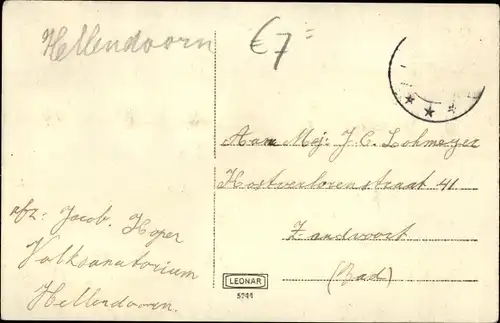 Hellendoorn
€7=
Aan Mej: J. C. Lohmeyer
Kostverlorenstraat 41
Zandvoort
(Bad)
afz: Jacob. Hoper
Volksanatorium
Hellendoorn.
LEONAR
5744